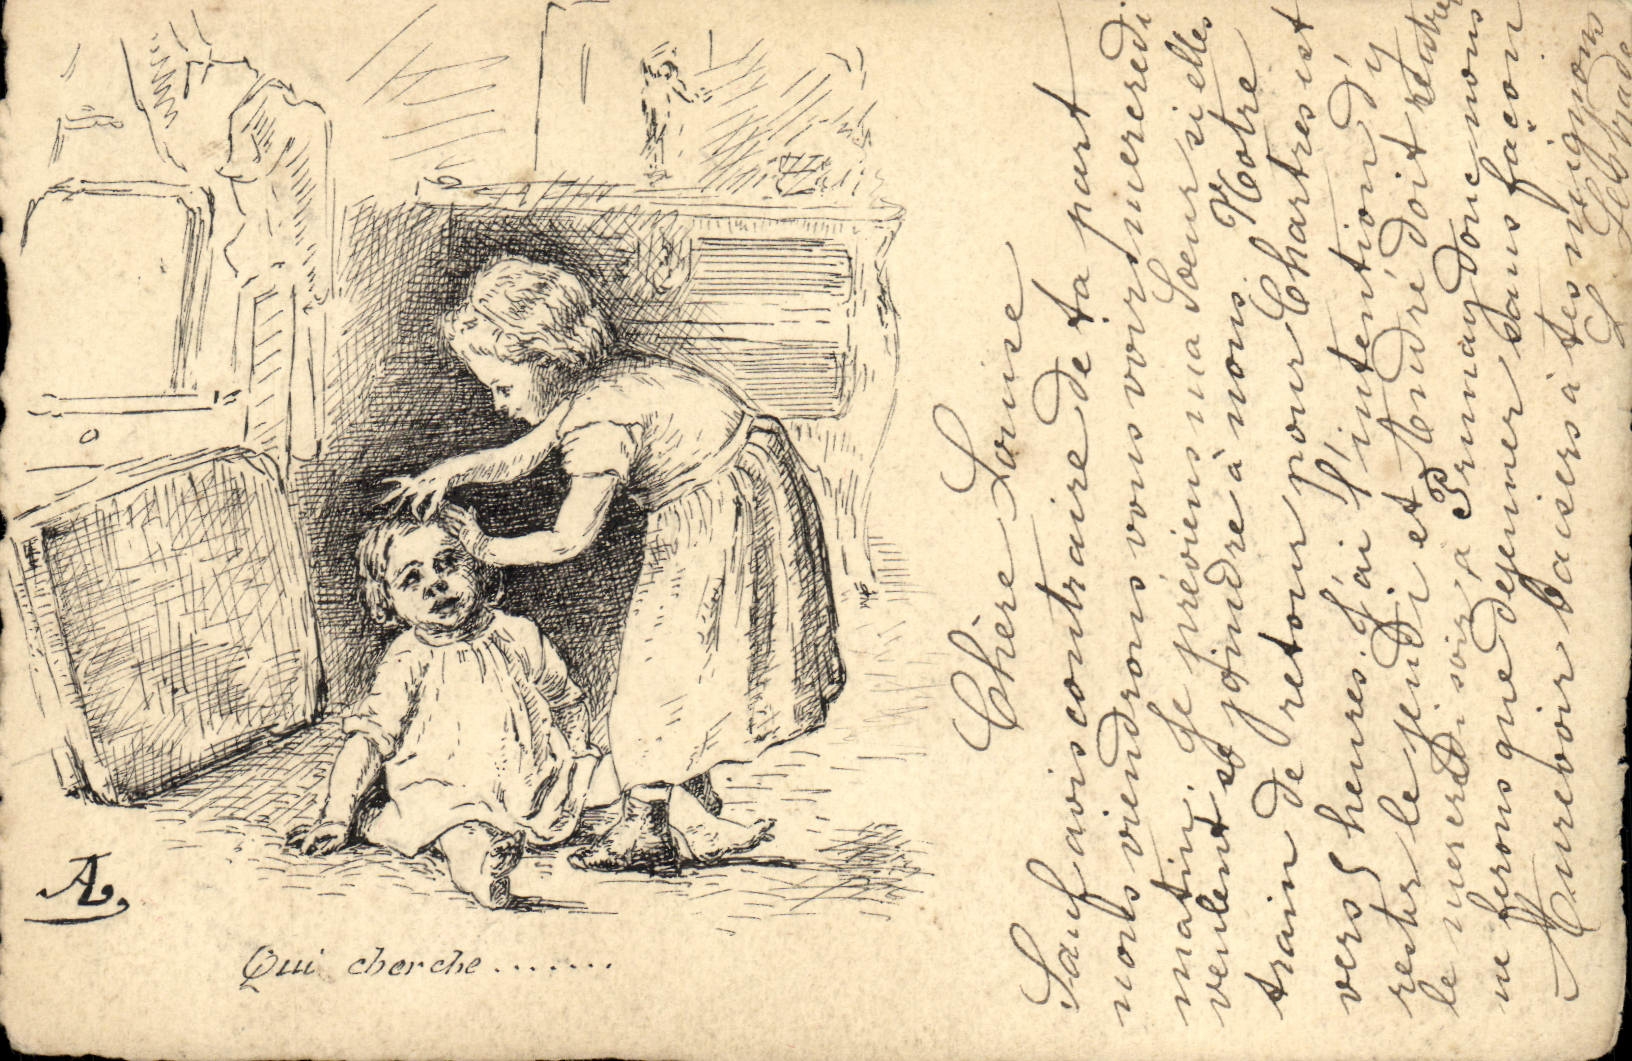 AL.
Qui cherche.......
Chère Louise
Sauf avis contraire de ta part
nous viendrons vous voir mercredi
matin. Je préviens ma Soeur si elles
veulent se joindre à nous. Notre
train de retour pour Chartres est
vers 5 heures. J'ai l'intention d'y
rester le jeudi et André doit rentrer
le mercredi soir à Prunay donc nous
ne ferons que déjeuner sans façon
Aurevoir baisers à tes mignons